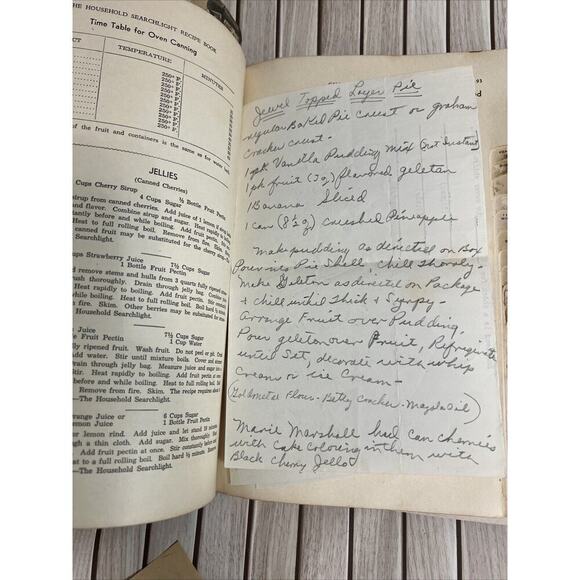 THE HOUSEHOLD SEARCHLIGHT RECIPE BOOK
Time Table for Oven Canning
TEMPERATURE
MINUTES
250° F.
250° F.
250° F.
250° F.
250° F.
250° F.
250° F.
of the fruit and containers is the same as for water bath
JELLIES
(Canned Cherries)
Cups Cherry Syrup 4 Cups Sugar ½ Bottle Fruit Pectin
syrup from canned cherries. Add juice of 1 lemon, if
and flavor. Combine sirup and sugar. Heat rapidly
stantly before and while boiling. Add fruit pectin.
Heat to full rolling boil. Remove from fire. Skim.
canned fruit may be substituted for the cherry
Searchlight.
Cups Strawberry Juice 7½ Cups Sugar
1 Bottle Fruit Pectin
nd remove stems and hulls from 3 quarts fully ripened
rush thoroughly. Drain through jelly bag. Combine
Heat rapidly to boiling. Add fruit pectin. Stir
while boiling. Heat to full rolling boil. Boil hard ½
fire. Skim. Other berries may be substituted for straw
e Household Searchlight.
Juice 7½ Cups Sugar
e Fruit Pectin 1 Cup Water
lly ripened fruit. Wash fruit. Do not peel or pit. Crush
Add water. Stir until mixture boils. Cover and simmer
Drain through jelly bag. Measure juice and sugar into
tir. Heat rapidly to boiling. Add fruit pectin. Stir
before and while boiling. Heat to full rolling boil. Boil
Remove from fire. Skim. The recipe requires about
—The Household Searchlight.
ange Juice or 6 Cups Sugar
emon Juice 1 Bottle Fruit Pectin
or lemon rind. Add juice and let stand 10 minutes
ugh a thin cloth. Add sugar. Mix thoroughly. Heat
Add fruit pectin at once. Stir constantly before and
at to a full rolling boil. Boil hard ½ minute. Remove
—The Household Searchlight.
93
Jewel Topped Layer Pie
regular Baked Pie crust or graham
cracker crust -
1 pk Vanilla Pudding mix (not Instant)
1 pk fruit (3 oz) flavored geleton
1 Banana Sliced
1 can (8½ oz) crushed Pineapple
Make pudding as directed on Box
Pour into Pie Shell, chill thoroly -
Make Geleton as directed on Package
+ chill until thick + Syrupy -
Arrange Fruit over Pudding.
Pour geleton over Fruit, Refrigerate
until set, decorate with whip
Cream or ice Cream -
(Gold metal Flour - Betty Crocker - Mazola oil)
Marie Marshall had can cherries
with cake coloring in them with
Black Cherry Jello